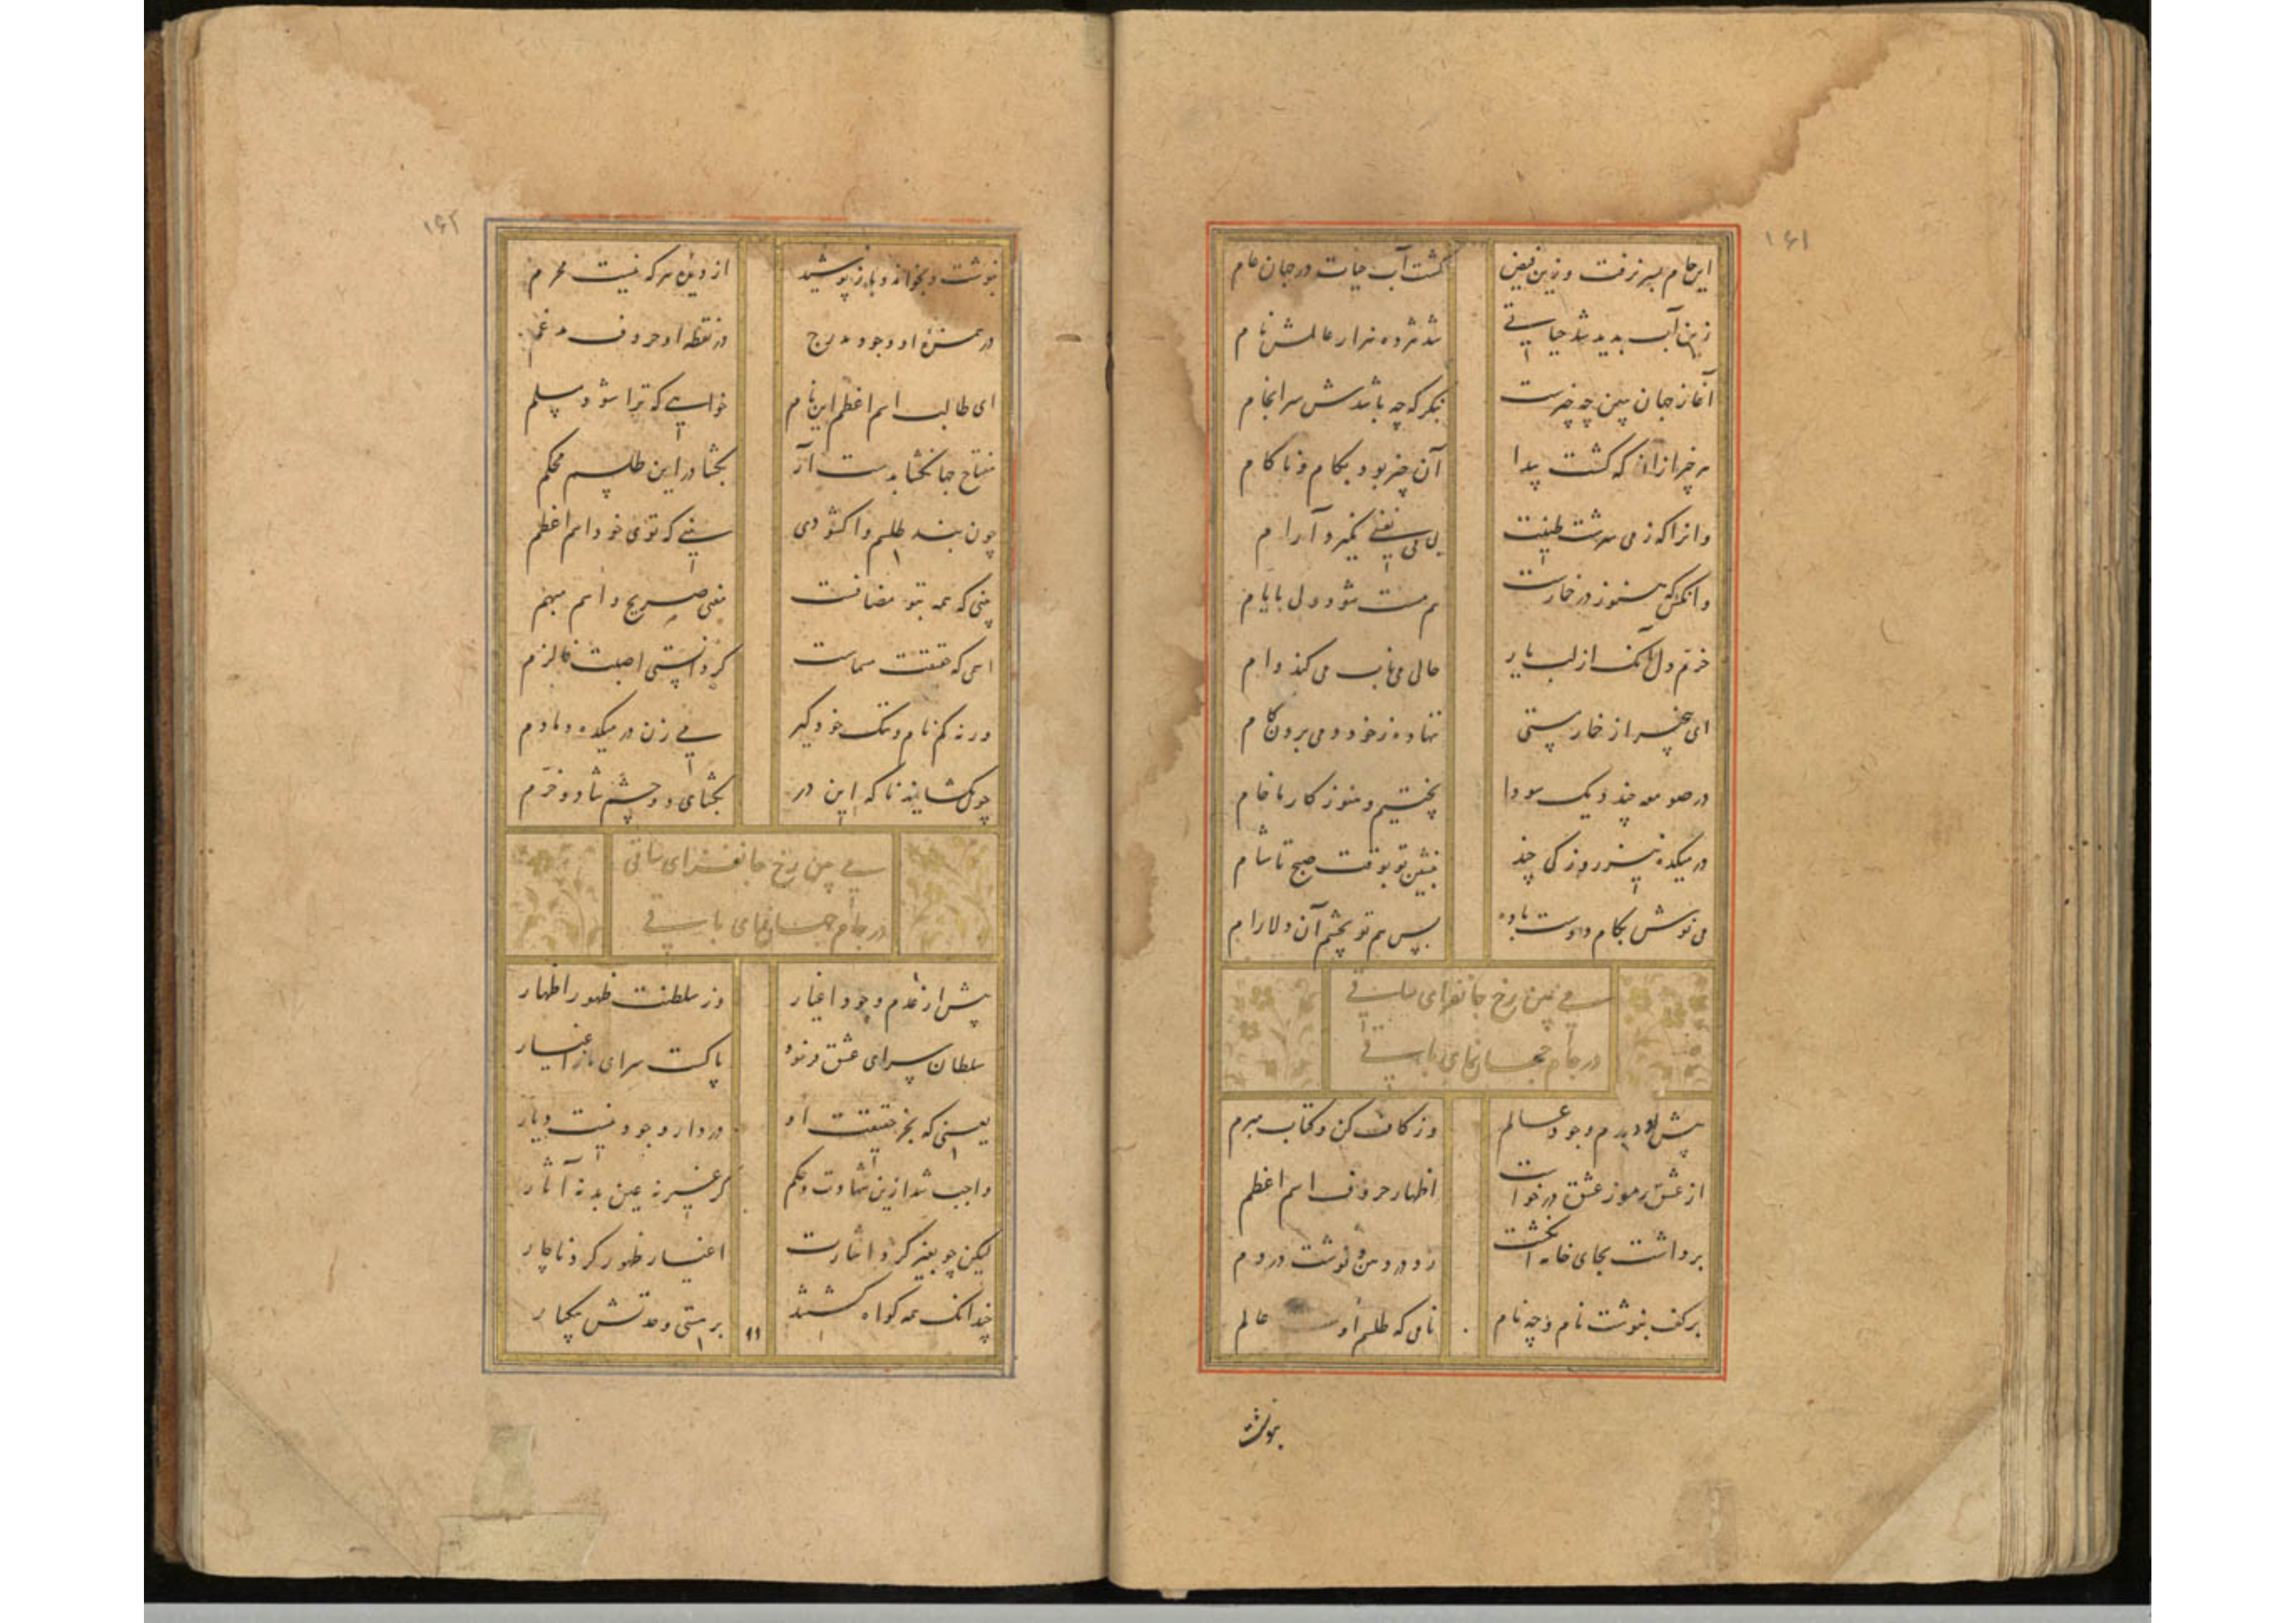 ۱۶۱
این جام بسر نرفت وزین فیض گشت آب حیات در جهان عام
زین آب بدید شد حیاتی شد هژده هزار عالمش نام
آغاز جهان ببین چه چیزست بنگر که چه باشدش سرانجام
هر چیز از آن که گشت پیدا آن چیز بود بکام و ناکام
وانرا که ز می سرشت طینت بی می نفسی نگیرد آرام
وانکس که هنوز در خمارست هم مست شود ولی بایام
خرم دل آنک از لب یار حالی می ناب می کند وام
ای بیخبر از خمار مستی ننهاده ز خود دمی برون گام
در صومعه چند دیک سودا پختیم و هنوز کار ما خام
در میکده نیز روزکی چند بنشین تو بوقت صبح تا شام
می نوش بکام دوست باده پس هم تو بچشم آن دلارام
می بین رخ جانفزای ساقی
در جام جهان نمای باقی
پیش از عدم وجود عالم وز کاف کن و کتاب مبرم
از عشق رموز عشق درخواست اظهار حروف اسم اعظم
برداشت بجای خامه انگشت زد در دهن و نوشت در دم
بر کف بنوشت نام و چه نام نامی که طلسم اوست عالم
بنوشت
۱۶۲
بنوشت و بخواند و باز پوشید از دیده هر که نیست محرم
در همزه او وجود مدرج در نقطه او حروف مدغم
ای طالب اسم اعظم این نام خواهی که ترا شود مسلم
مفتاح جهانگشا بدست آر بگشا در این طلسم محکم
چون بند طلسم واکشودی بینی که توی خود اسم اعظم
بینی که همه بتو مضافست معنی صریح و اسم مبهم
اسمی که حقیقت مسماست گر دانستی اصبت فالزم
ورنه کم نام و ننگ خود گیر می زن در میکده دمادم
چون بگشایند ناگه این در بگشای دو چشم شاد و خرم
می بین رخ جانفزای ساقی
در جام جهان نمای باقی
پیش از عدم وجود اغیار وز سلطنت ظهور اظهار
سلطان سرای عشق فرمود پاکست سرای ما ز اغیار
یعنی که بجز حقیقت او در دار وجود نیست دیار
واجب شد ازین شهادت و حکم کز غیر نه عین بد نه آثار
لیکن چو بغیر کرد اشارت اغیار ظهور کرد ناچار
چندانک همه گواه گشتند بر هستی وحدتش بیکبار